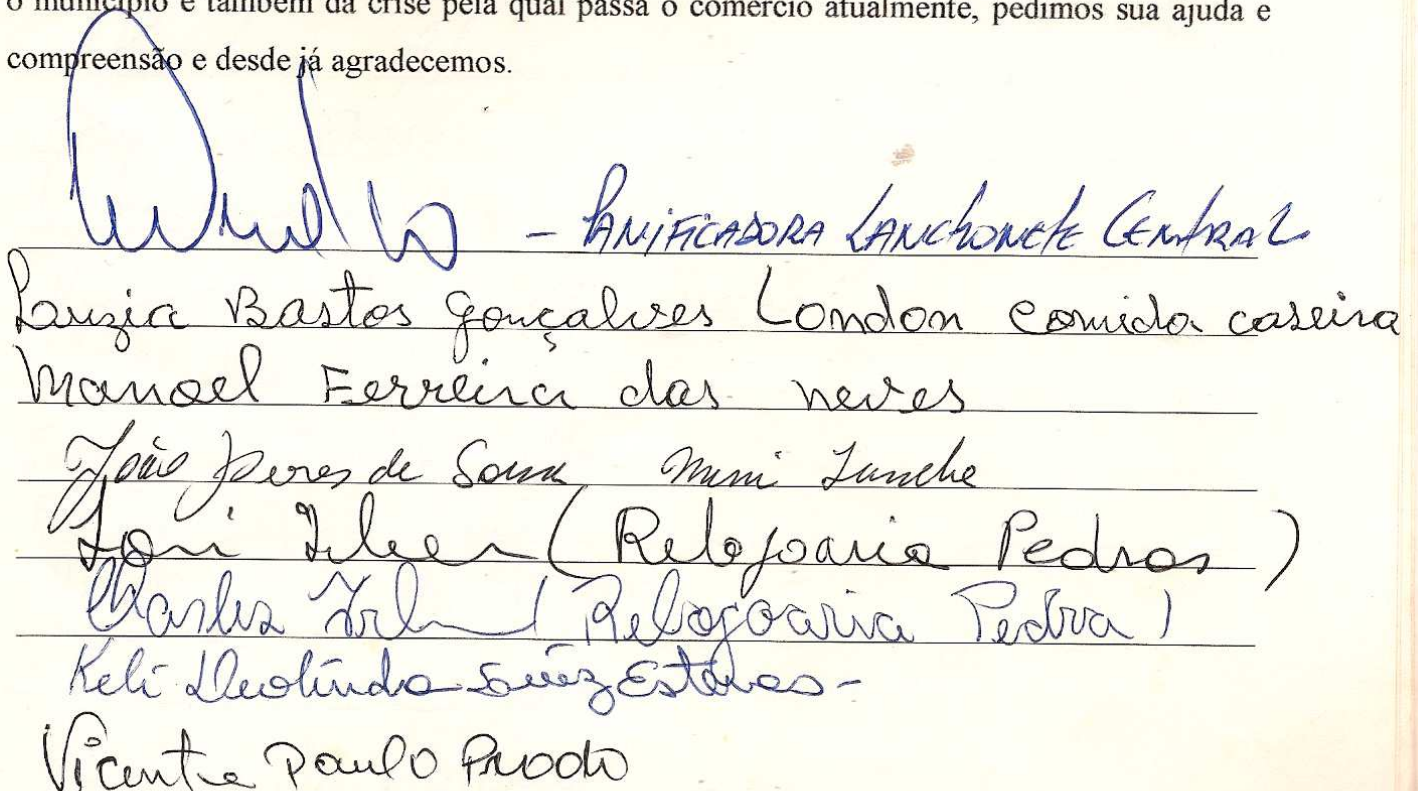 o município e também da crise pela qual passa o comércio atualmente, pedimos sua ajuda e
compreensão e desde já agradecemos.
- PANIFICADORA LANCHONETE CENTRAL
Luzia Bastos Gonçalves London comida caseira
Manoel Ferreira das neves
João Peres de Sousa Mini Lanche
(Relojoaria Pedras)
Charles (Relojoaria Pedra)
Keli Deolinda Estevas -
Vicente Paulo Prodo